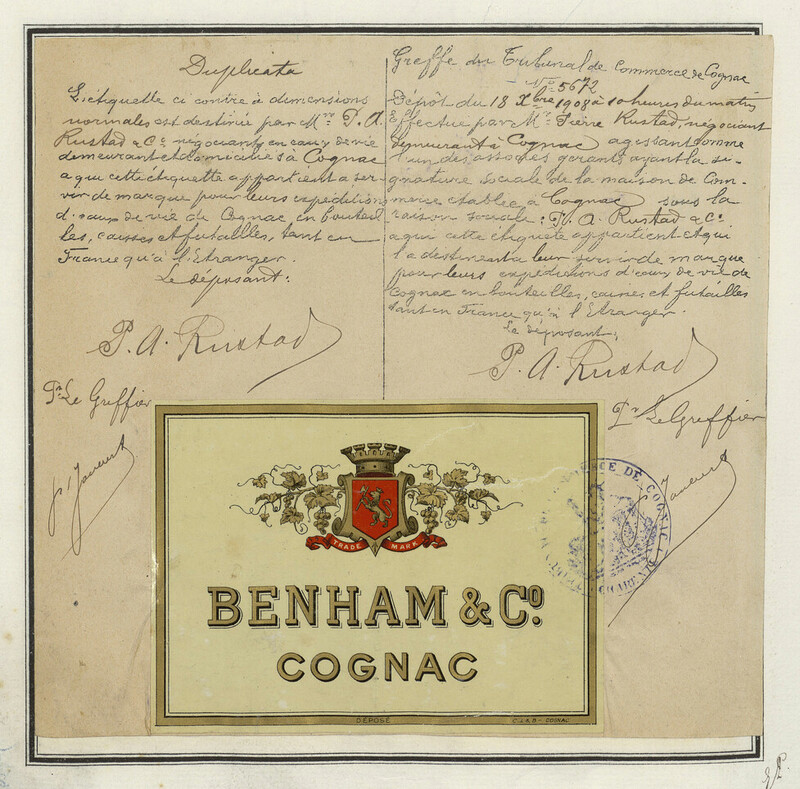 Duplicata
L'étiquette ci contre à dimensions
normales est destinée par Mrs P. A.
Rustad & Co négociants en eaux de vie
demeurant et domiciliés à Cognac
a qui cette étiquette appartient a ser-
vir de marque pour leurs expéditions
d'eaux de vie de Cognac, en bouteil
les, caisses et futailles, tant en
France qu'à l'Etranger.
Le déposant:
P. A. Rustad
Pr Le Greffier
Greffe du Tribunal de Commerce de Cognac
No 5672
Dépôt du 18 Xbre 1908 à 10 heures du matin
Effectué par Mr Rustad, négociant
demeurant à Cognac agissant comme
l'un des associés gérants ayant la si-
gnature sociale de la maison de Com-
merce établie à Cognac sous la
raison sociale: P. A. Rustad & Co.
a qui cette étiquete appartient et qui
l'a destinent a leur servir de marque
pour leurs expéditions d'eaux de vie de
Cognac en bouteilles, caisses et futailles
tant en France qu'à l'Etranger.
Le déposant,
P. A. Rustad
Pr Le Greffier
TRADE MARK
BENHAM & Co.
COGNAC
DÉPOSÉ
COGNAC
COMMERCE DE COGNAC